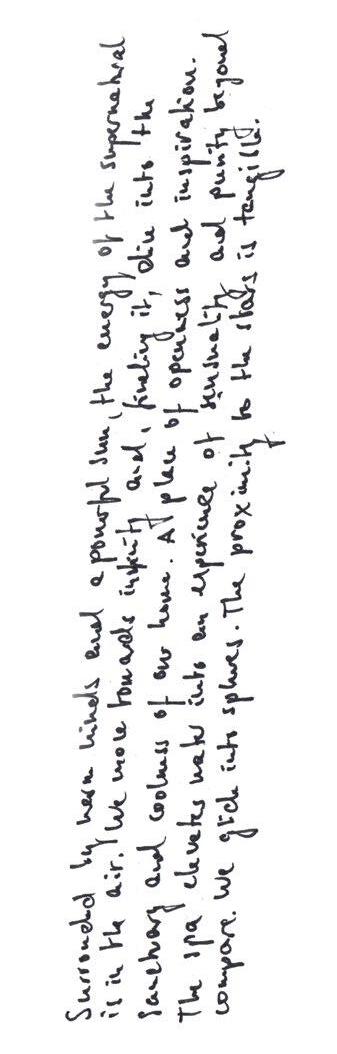 Surrounded by warm winds and a powerful sun, the energy of the supernatural
is in the air. We move towards infinity and, finding it, dive into the
sanctuary and coolness of our home. A place of openness and inspiration.
The spa elevates water into an experience of sensuality and purity beyond
compare. We glide into spheres. The proximity to the stars is tangible.